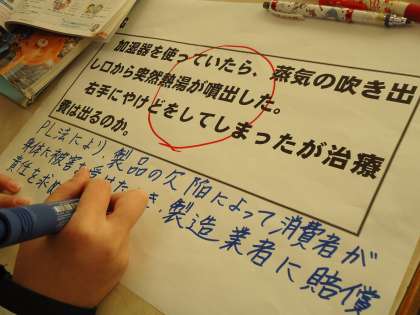 加湿器を使っていたら、蒸気の吹き出
し口から突然熱湯が噴出した。
右手にやけどをしてしまったが治療
費は出るのか。
PL法により、製品の欠陥によって消費者が
身体に被害を受けたとき、製造業者に賠償
責任を求め